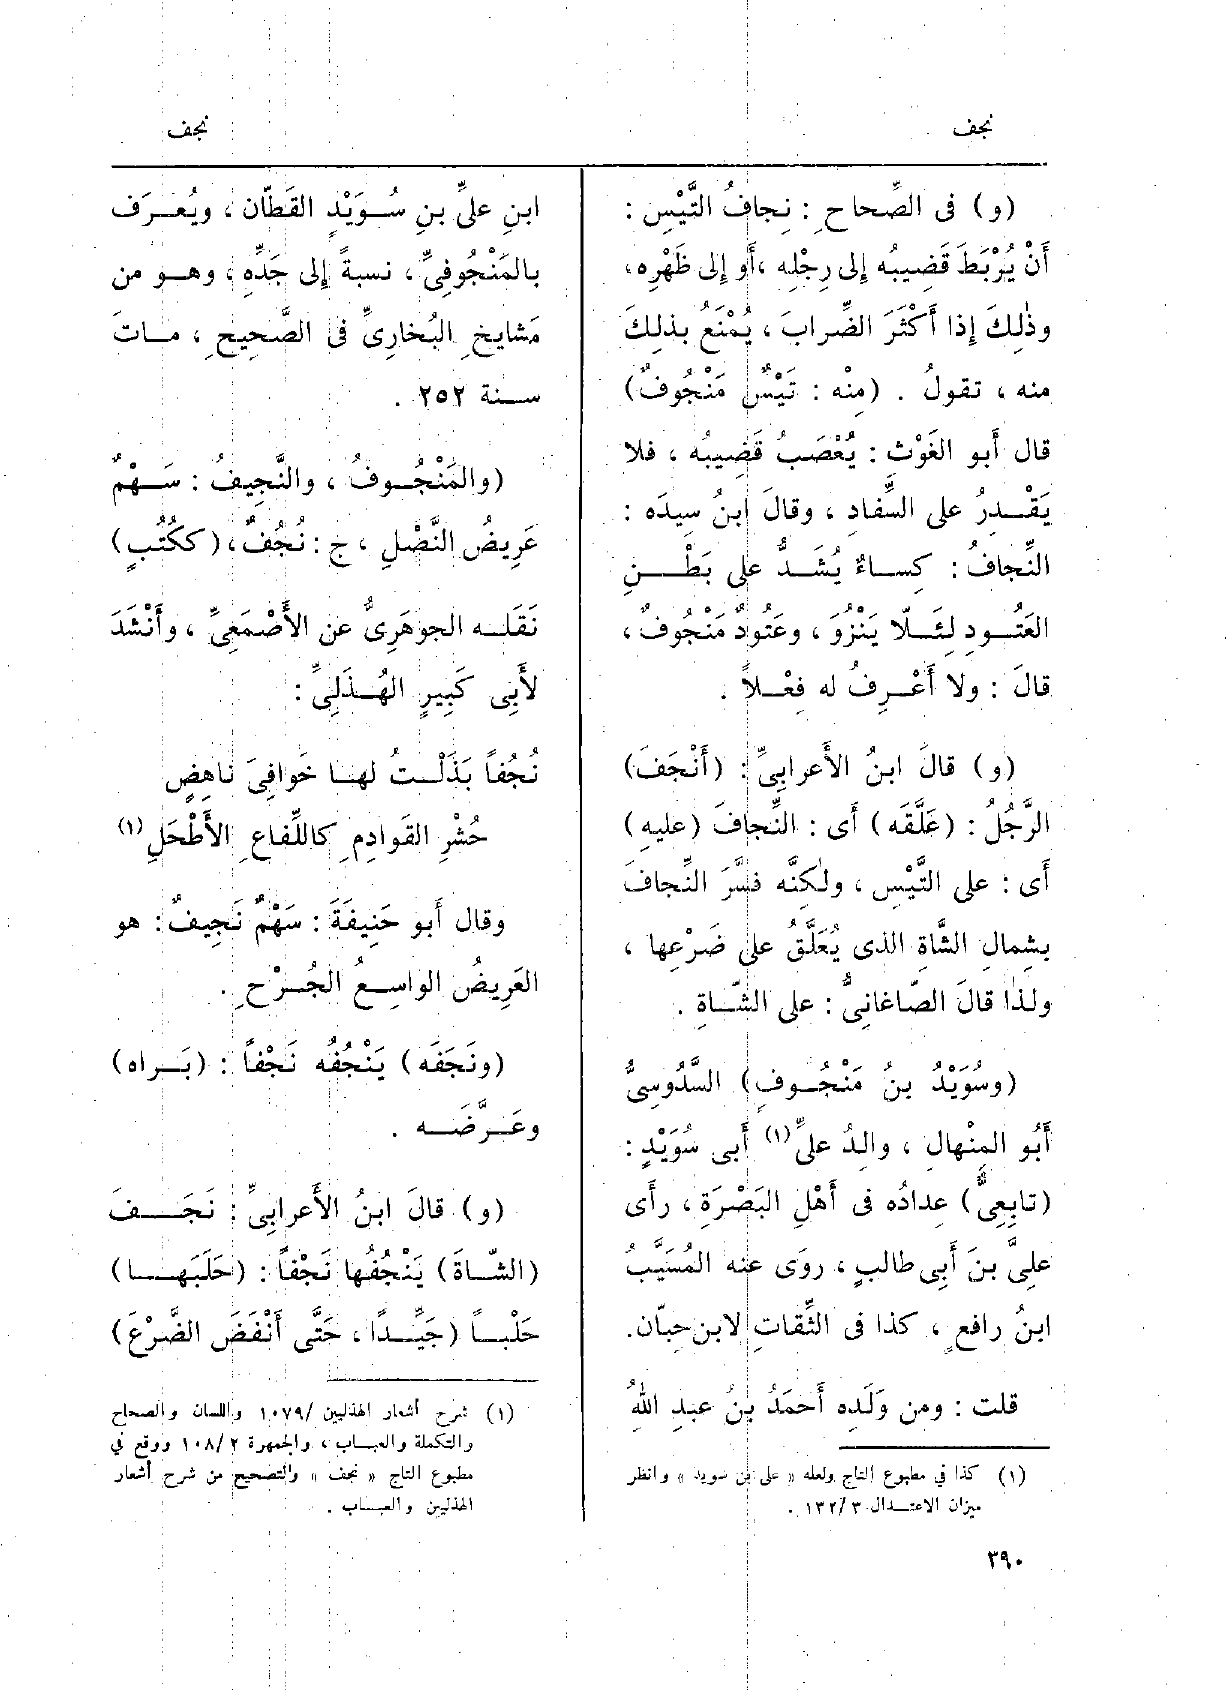 نجف
نجف
(و) فى الصِّحاحِ : نِجافُ التَّيْسِ :
أَنْ يُرْبَطَ قَضِيبُه إِلى رِجْلِه ، أَو إِلى ظَهْرِه،
وذٰلِكَ إِذا أَكْثَرَ الضِّرابَ ، يُمْنَعُ بذٰلِكَ
منه ، تقولُ . (مِنْه : تَيْسٌ مَنْجُوفٌ)
قال أَبو الغَوْثِ : يُعْصَبُ قَضِيبُه ، فلا
يَقْــدِرُ على السِّفادِ ، وقالَ ابنُ سِيدَه :
النِّجافُ : كِســاءٌ يُشَــدُّ على بَطْــنِ
العَتُــودِ لِئَــلّا يَنْزُوَ ، وعَتُودٌ مَنْجُوفٌ ،
قالَ : ولا أَعْــرِفُ له فِعْــلاً .
(و) قالَ ابنُ الأَعرابِيِّ : (أَنْجَفَ)
الرَّجُلُ : (عَلَّقَه) أى : النِّجافَ (عليهِ)
أى : على التَّيْسِ ، ولٰكِنَّه فسَّرَ النِّجافَ
بشِمالِ الشَّاةِ الذى يُعَلَّقُ على ضَرْعِها ،
ولذٰا قالَ الصّاغانِىُّ : على الشّــاةِ .
(وسُوَيْدُ بنُ مَنْجُــوفٍ) السَّدُوسِىُّ
أَبُو المِنْهالِ ، والدُ علىِّ (١) أَبى سُوَيْدٍ :
(تابِعِىٌّ) عِدادُه فى أَهْلِ البَصْرَةِ ، رأَى
علىَّ بنَ أَبِى طالبٍ ، روَى عنه المُسَيَّبُ
ابنُ رافعٍ ، كذا فى الثِّقاتِ لابن حِبّان.
قلت : ومن وَلَدِه أَحمَدُ بنُ عبدِ اللهِ
(١) كذا في مطبوع التاج ولعله « على بن سويد » وانظر
ميزان الاعتــدال ١٣٢/٣ .
ابنِ علىِّ بنِ سُــوَيْدٍ القَطّان ، ويُعْــرَف
بالمَنْجُوفِىِّ ، نسبةً إِلى جَدِّه ، وهــو من
مَشايخِ البُخارِىِّ فى الصَّحِيحِ ، مــاتَ
ســنة ٢٥٢ .
(والمَنْجُــوفُ ، والنَّجِيفُ : سَــهْمٌ
عَرِيضُ النَّصْلِ ، ج : نُجُفٌ ، (ككُتُبٍ)
نَقَلــه الجوْهَرِىُّ عن الأَصْمَعِىِّ ، وأَنْشَدَ
لأَبِى كَبِيرٍ الهُــذَلِىِّ :
نُجُفاً بَذَلْــتُ لهــا خَوافِىَ ناهِضٍ
حُشْرِ القَوادِمِ كاللِّفاعِ الأَطْحَلِ (١)
وقال أَبو حَنِيفَةَ : سَهْمٌ نَجِيفٌ : هو
العَرِيضُ الواسِــعُ الجُــرْحِ .
(ونَجَفَه) يَنْجُفُه نَجْفاً : (بَــراه)
وعَــرَّضَــه .
(و) قالَ ابنُ الأَعرابِىِّ : نَجَــفَ
(الشّــاةَ) يَنْجُفُها نَجْفاً : (حَلَبَهــا)
حَلْبــاً (جَيِّــدًا ، حَتَّى أَنْفَضَ الضَّرْعَ)
(١) شرح أشعار الهذليين /١٠٧٩ واللسان والصحاح
والتكملة والعبــاب ، والجمهرة ١٠٨/٢ ووقع في
مطبوع التاج « نجف » والتصحيح من شرح أشعار
الهذليين والعبــاب .
٣٩٠